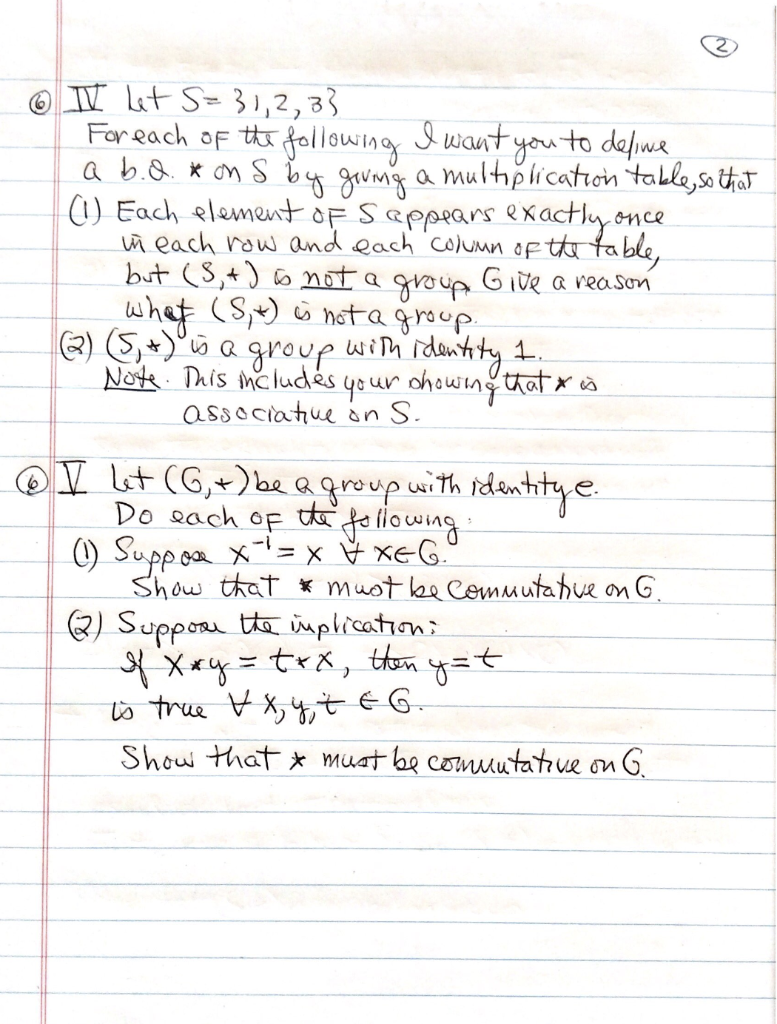 ②
⑥ IV Let S = {1, 2, 3}
For each of the following I want you to define
a b.o. * on S by giving a multiplication table, so that
(1) Each element of S appears exactly once
in each row and each column of the table,
but (S, *) is not a group. Give a reason
what (S, *) is not a group.
(2) (S, *) is a group with identity 1.
Note. This includes your showing that * is
associative on S.
⑥ V Let (G, *) be a group with identity e.
Do each of the following:
(1) Suppose x⁻¹ = x ∀ x ∈ G.
Show that * must be commutative on G.
(2) Suppose the implication:
If x * y = t * x, then y = t
is true ∀ x, y, t ∈ G.
Show that * must be commutative on G.